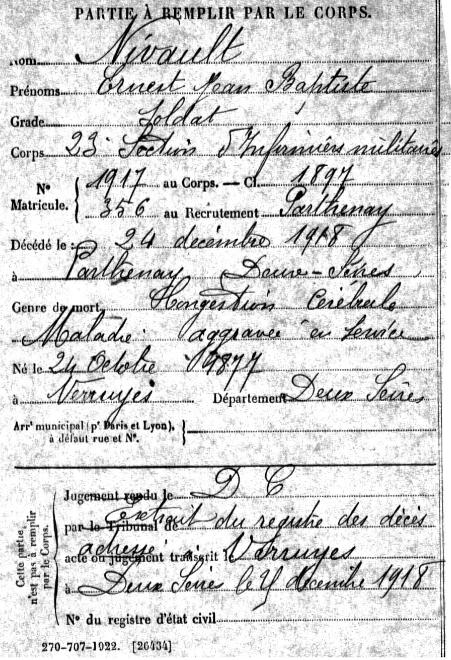 PARTIE À REMPLIR PAR LE CORPS.
Nom Nivault
Prénoms Ernest Jean Baptiste
Grade Soldat
Corps 23e Section d'Infirmiers militaires
N° Matricule. { 1917 au Corps. — Cl. 1897
356 au Recrutement Parthenay
Décédé le 24 décembre 1918
à Parthenay Deux-Sèvres
Genre de mort Congestion Cérébrale
Maladie aggravée en service
Né le 24 Octobre 1877
à Verruyes Département Deux Sèvres
Arrt municipal (pr Paris et Lyon), à défaut rue et N°. }
Cette partie n'est pas à remplir par le Corps.
Jugement rendu le D C
par le Tribunal de Extrait du registre des décès
acte ou jugement transcrit le adressé à Verruyes
à Deux Sèvres le décembre 1918
N° du registre d'état civil
270-707-1922. [26434]